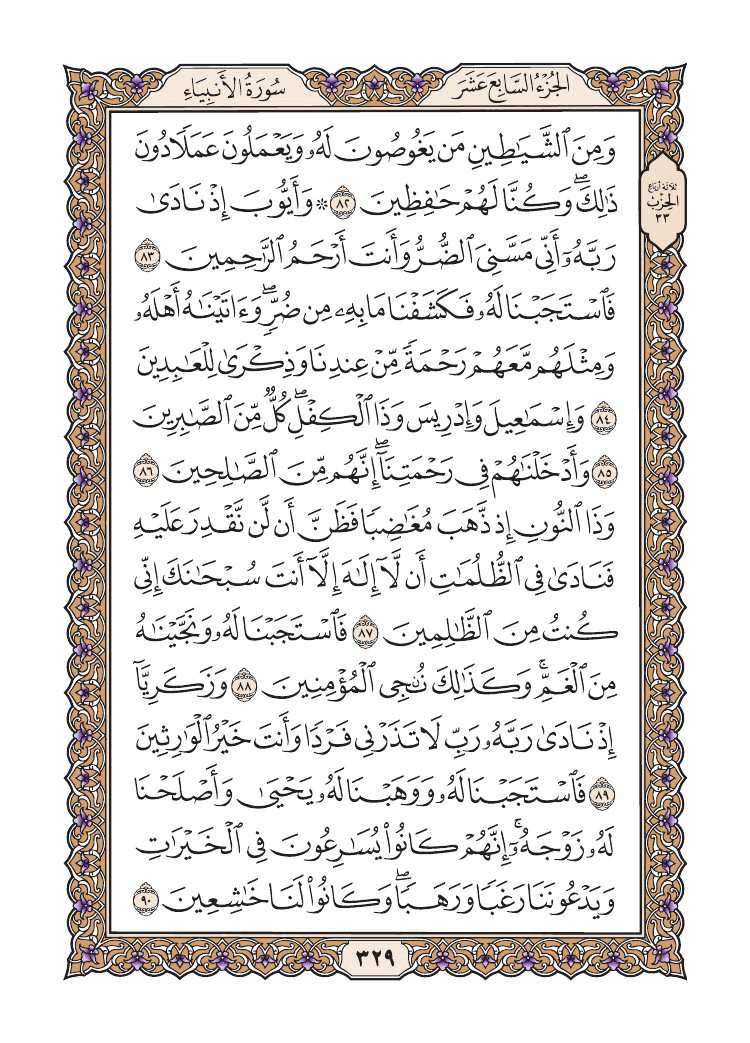 الجزء السابع عشر
سورة الأنبياء
ثلاثة أرباع
الحزب
٣٣
وَمِنَ ٱلشَّيَٰطِينِ مَن يَغُوصُونَ لَهُۥ وَيَعْمَلُونَ عَمَلًا دُونَ
ذَٰلِكَۖ وَكُنَّا لَهُمْ حَٰفِظِينَ ٨٢ ۞ وَأَيُّوبَ إِذْ نَادَىٰ
رَبَّهُۥٓ أَنِّي مَسَّنِيَ ٱلضُّرُّ وَأَنتَ أَرْحَمُ ٱلرَّٰحِمِينَ ٨٣
فَٱسْتَجَبْنَا لَهُۥ فَكَشَفْنَا مَا بِهِۦ مِن ضُرٍّۖ وَءَاتَيْنَٰهُ أَهْلَهُۥ
وَمِثْلَهُم مَّعَهُمْ رَحْمَةً مِّنْ عِندِنَا وَذِكْرَىٰ لِلْعَٰبِدِينَ
٨٤ وَإِسْمَٰعِيلَ وَإِدْرِيسَ وَذَا ٱلْكِفْلِۖ كُلٌّ مِّنَ ٱلصَّٰبِرِينَ
٨٥ وَأَدْخَلْنَٰهُمْ فِي رَحْمَتِنَآۖ إِنَّهُم مِّنَ ٱلصَّٰلِحِينَ ٨٦
وَذَا ٱلنُّونِ إِذ ذَّهَبَ مُغَٰضِبًا فَظَنَّ أَن لَّن نَّقْدِرَ عَلَيْهِ
فَنَادَىٰ فِي ٱلظُّلُمَٰتِ أَن لَّآ إِلَٰهَ إِلَّآ أَنتَ سُبْحَٰنَكَ إِنِّي
كُنتُ مِنَ ٱلظَّٰلِمِينَ ٨٧ فَٱسْتَجَبْنَا لَهُۥ وَنَجَّيْنَٰهُ
مِنَ ٱلْغَمِّۚ وَكَذَٰلِكَ نُۨجِي ٱلْمُؤْمِنِينَ ٨٨ وَزَكَرِيَّآ
إِذْ نَادَىٰ رَبَّهُۥ رَبِّ لَا تَذَرْنِي فَرْدًا وَأَنتَ خَيْرُ ٱلْوَٰرِثِينَ
٨٩ فَٱسْتَجَبْنَا لَهُۥ وَوَهَبْنَا لَهُۥ يَحْيَىٰ وَأَصْلَحْنَا
لَهُۥ زَوْجَهُۥٓۚ إِنَّهُمْ كَانُوا۟ يُسَٰرِعُونَ فِي ٱلْخَيْرَٰتِ
وَيَدْعُونَنَا رَغَبًا وَرَهَبًاۖ وَكَانُوا۟ لَنَا خَٰشِعِينَ ٩٠
٣٢٩